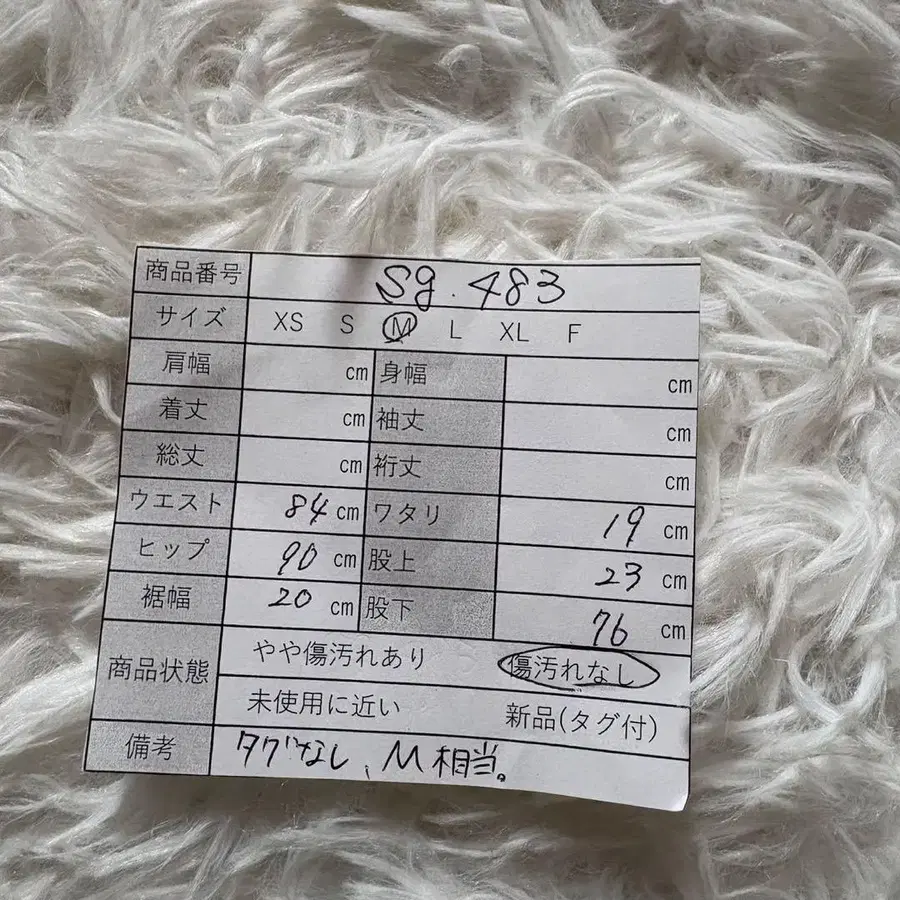 商品番号 Sg.483
サイズ XS S M L XL F
肩幅 cm 身幅 cm
着丈 cm 袖丈 cm
総丈 cm 裄丈 cm
ウエスト 84 cm ワタリ 19 cm
ヒップ 90 cm 股上 23 cm
裾幅 20 cm 股下 76 cm
商品状態 やや傷汚れあり 傷汚れなし
未使用に近い 新品(タグ付)
備考 タグなし、M相当。